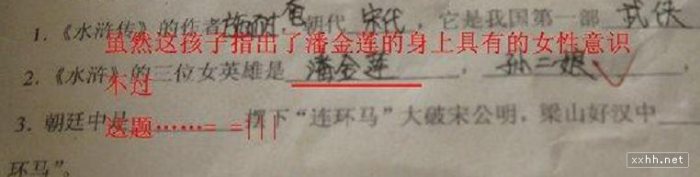 1.《水浒传》的作者施耐庵,朝代 宋代 ,它是我国第一部 武侠
虽然这孩子指出了潘金莲的身上具有的女性意识
2.《水浒》的三位女英雄是 潘金莲 , 孙二娘
不过
3. 朝廷中是 摆下“连环马”大破宋公明,梁山好汉中
这题……= =| | |
环马”。
xxhh.net